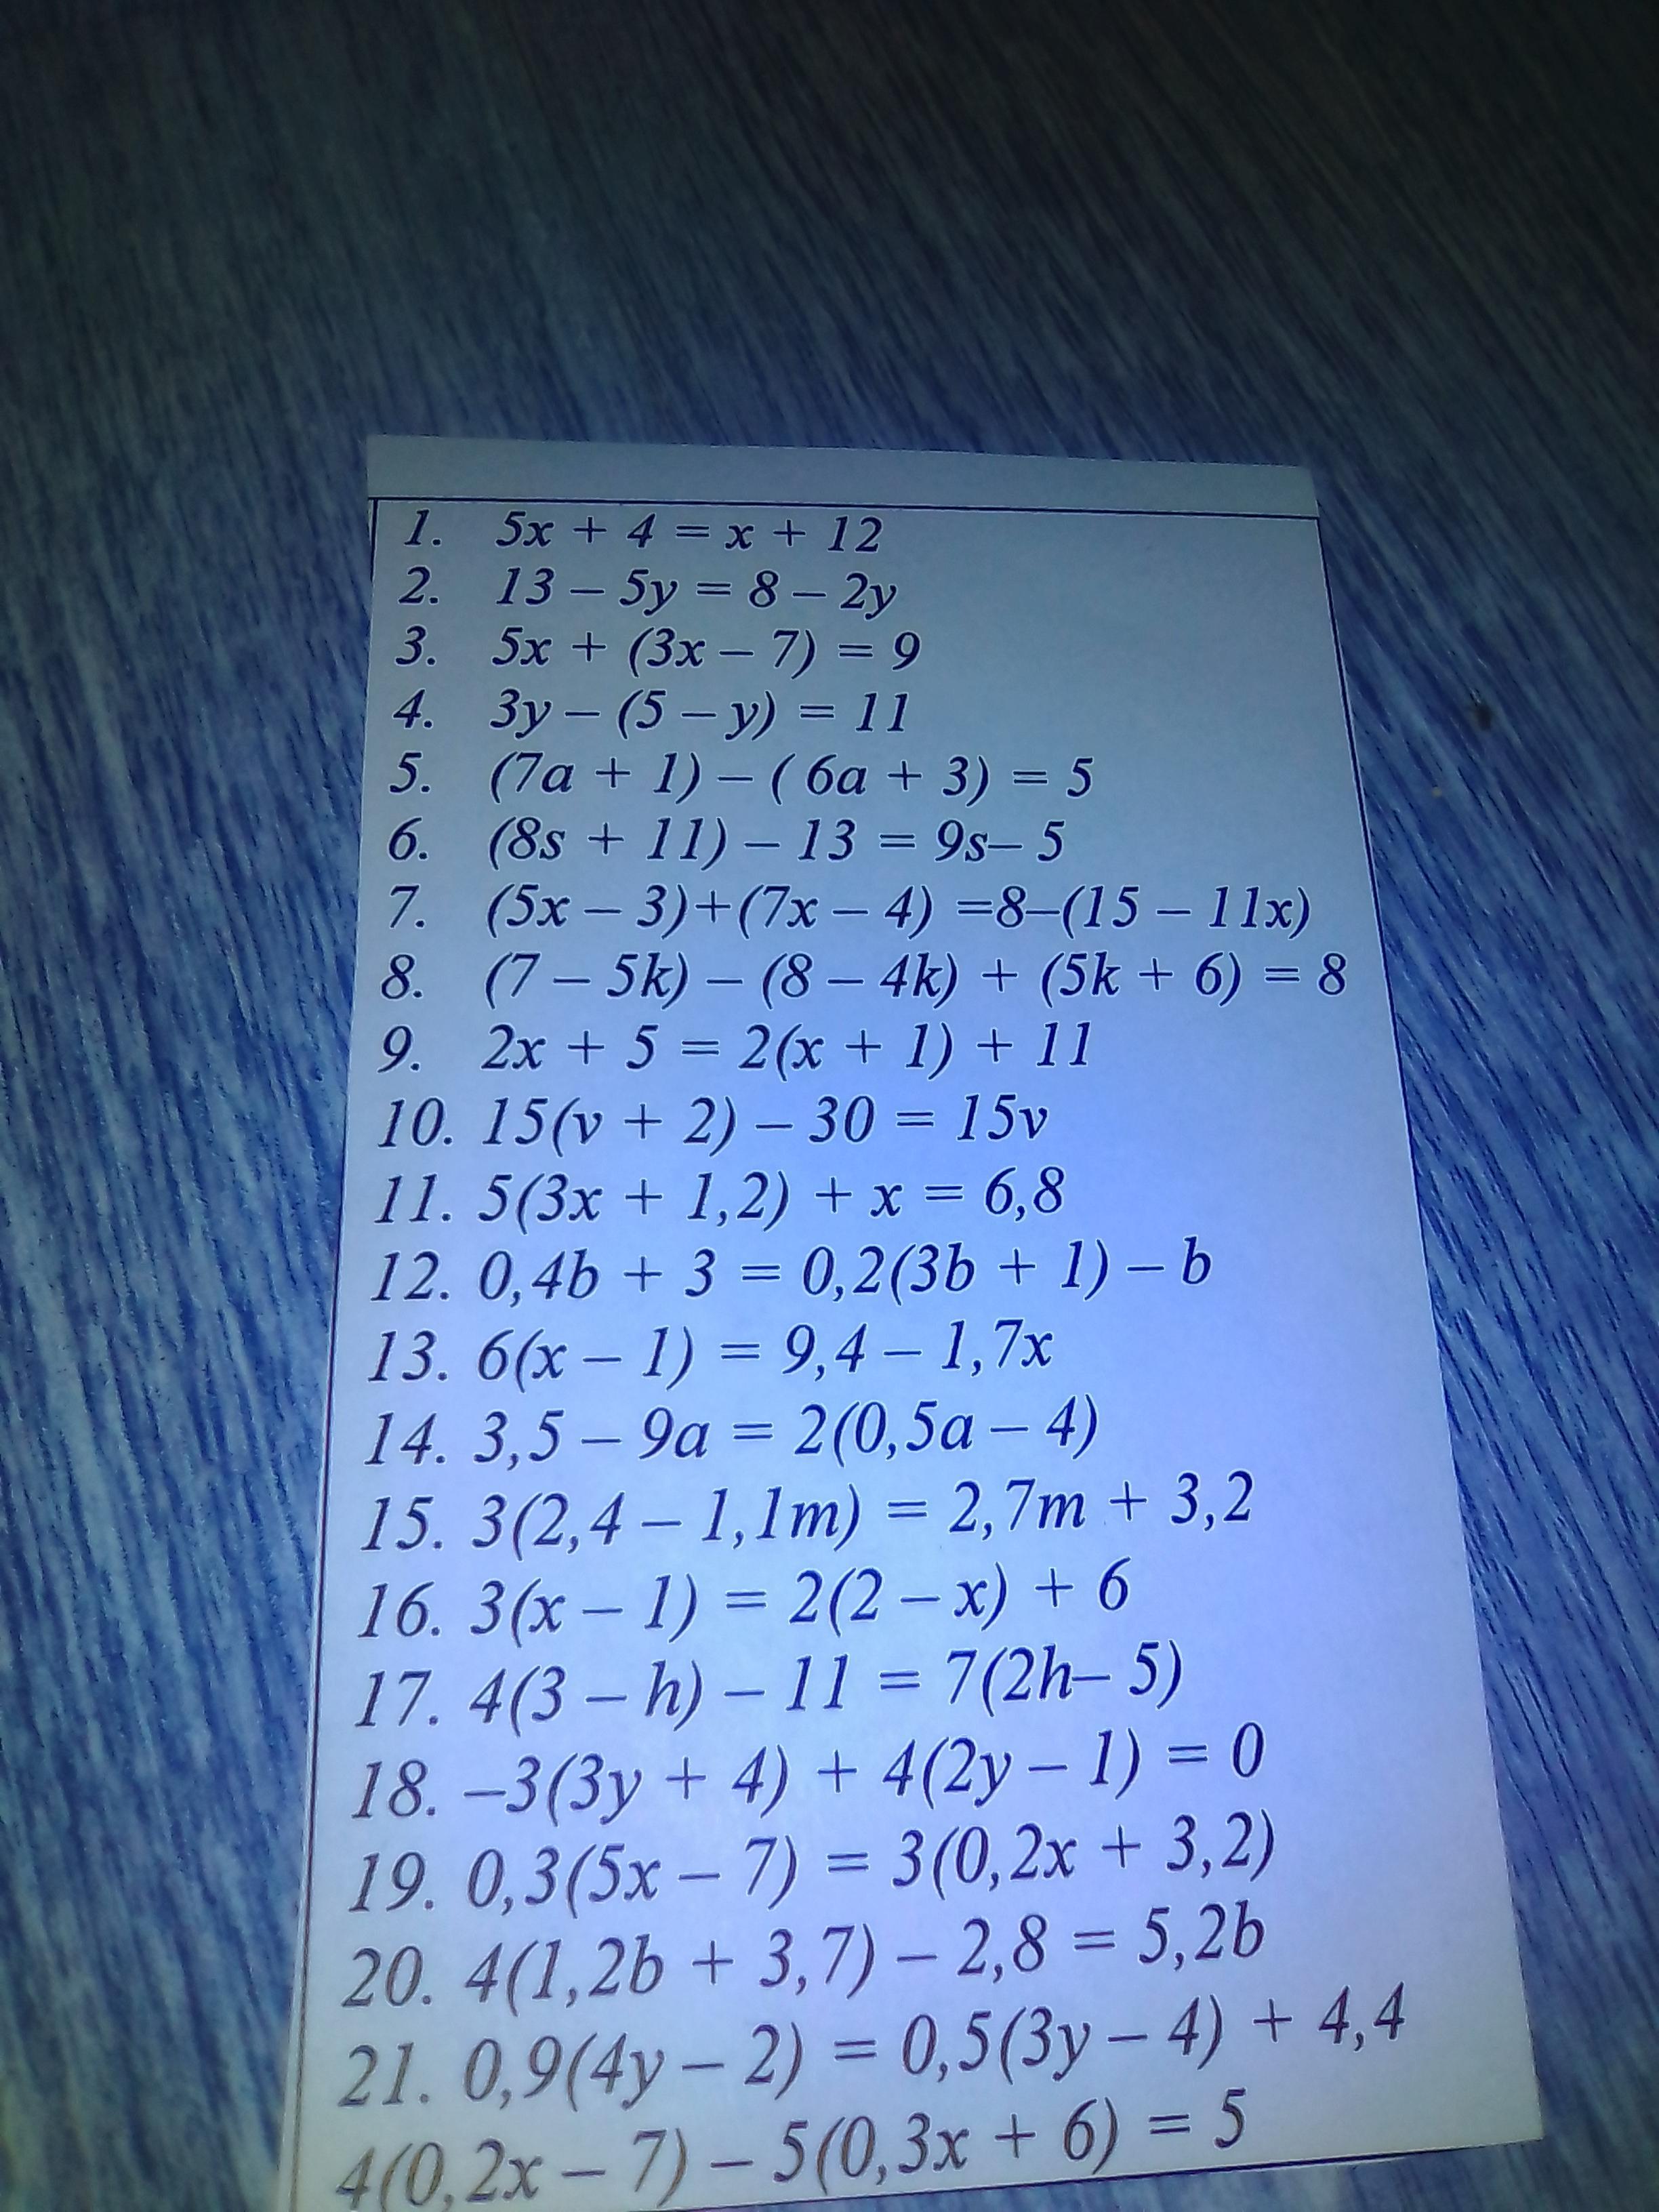 1. 5x + 4 = x + 12
2. 13 – 5y = 8 – 2y
3. 5x + (3x – 7) = 9
4. 3y – (5 – y) = 11
5. (7a + 1) – ( 6a + 3) = 5
6. (8s + 11) – 13 = 9s– 5
7. (5x – 3)+(7x – 4) =8–(15 – 11x)
8. (7 – 5k) – (8 – 4k) + (5k + 6) = 8
9. 2x + 5 = 2(x + 1) + 11
10. 15(v + 2) – 30 = 15v
11. 5(3x + 1,2) + x = 6,8
12. 0,4b + 3 = 0,2(3b + 1) – b
13. 6(x – 1) = 9,4 – 1,7x
14. 3,5 – 9a = 2(0,5a – 4)
15. 3(2,4 – 1,1m) = 2,7m + 3,2
16. 3(x – 1) = 2(2 – x) + 6
17. 4(3 – h) – 11 = 7(2h– 5)
18. –3(3y + 4) + 4(2y – 1) = 0
19. 0,3(5x – 7) = 3(0,2x + 3,2)
20. 4(1,2b + 3,7) – 2,8 = 5,2b
21. 0,9(4y – 2) = 0,5(3y – 4) + 4,4
4(0,2x – 7) – 5(0,3x + 6) = 5